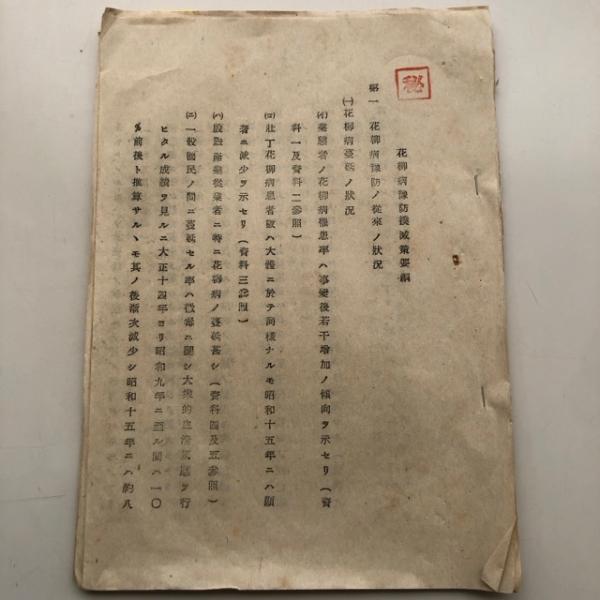 秘
花柳病豫防撲滅策要綱
第一 花柳病豫防ノ從來ノ狀況
(一)花柳病蔓延ノ狀況
(イ)業態者ノ花柳病罹患率ハ事變後若干增加ノ傾向ヲ示セリ(資
料一及資料二參照)
(ロ)壯丁花柳病患者數ハ大體ニ於テ同樣ナルモ昭和十五年ニハ顯
著ニ減少ヲ示セリ(資料三參照)
(ハ)殷賑産業從業者ニ特ニ花柳病ノ蔓延甚シ(資料四及五參照)
(ニ)一般國民ノ間ニ蔓延セル率ハ黴毒ニ關シ大衆的血清反應ヲ行
ヒタル成績ヲ見ルニ大正十四年ヨリ昭和九年ニ至ル間ハ一〇
%前後ト推算サルヽモ其ノ後漸次減少シ昭和十五年ニハ約八